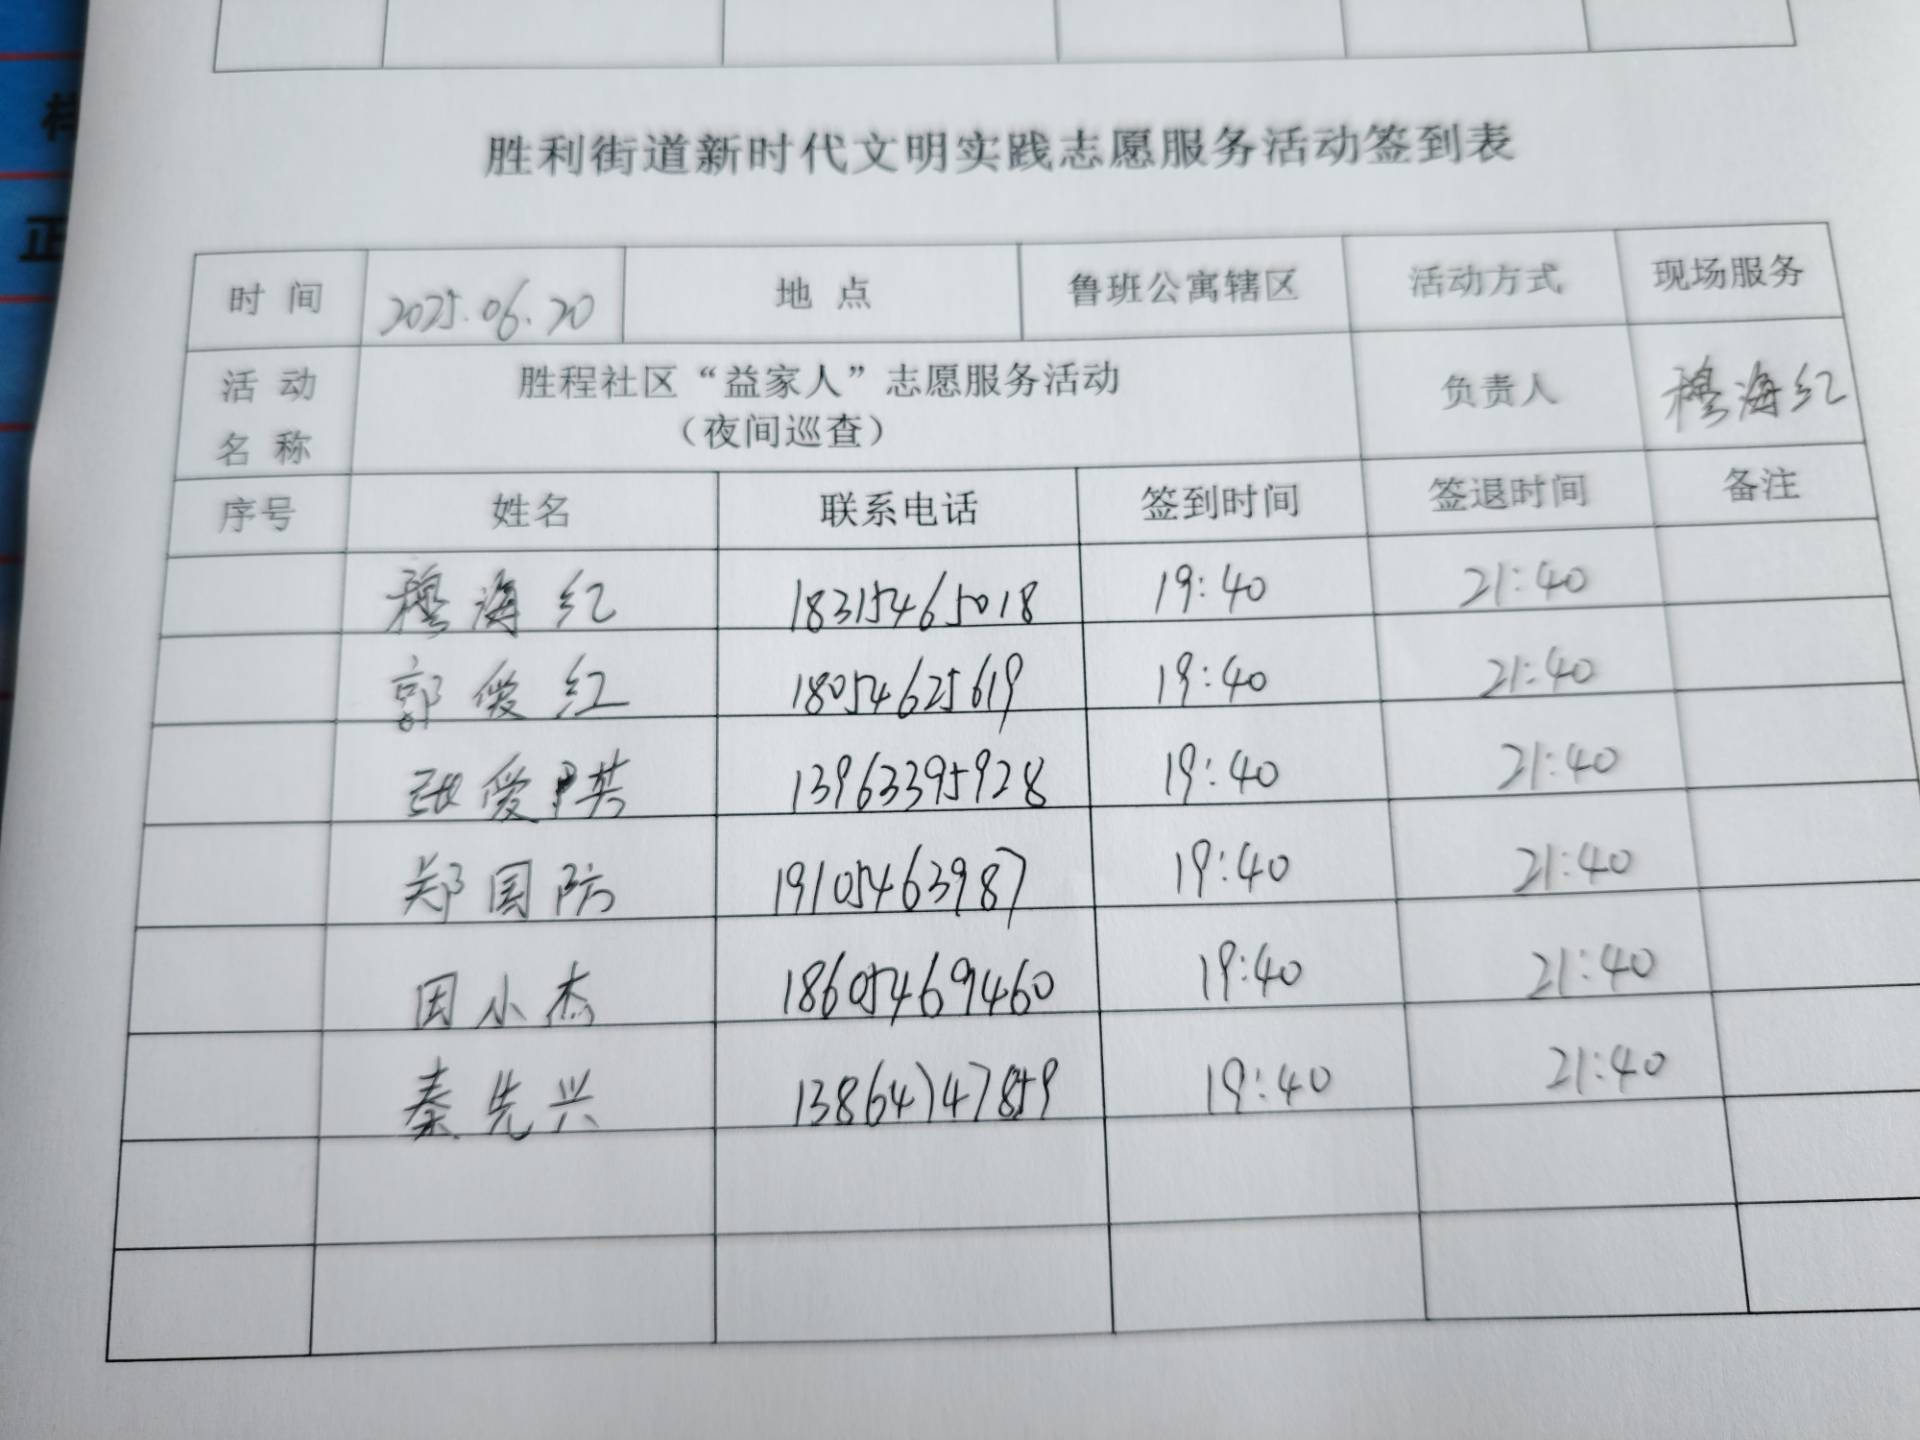 样
正
胜利街道新时代文明实践志愿服务活动签到表
时 间 2025.06.20 地 点 鲁班公寓辖区 活动方式 现场服务
活 动 名 称 胜程社区“益家人”志愿服务活动 （夜间巡查） 负责人 穆海红
序号 姓名 联系电话 签到时间 签退时间 备注
穆海红 18315465018 19:40 21:40
郭俊红 18054625619 19:40 21:40
张爱 13963395928 19:40 21:40
郑国防 19105463987 19:40 21:40
田小杰 18605469460 19:40 21:40
秦先兴 13864747859 19:40 21:40